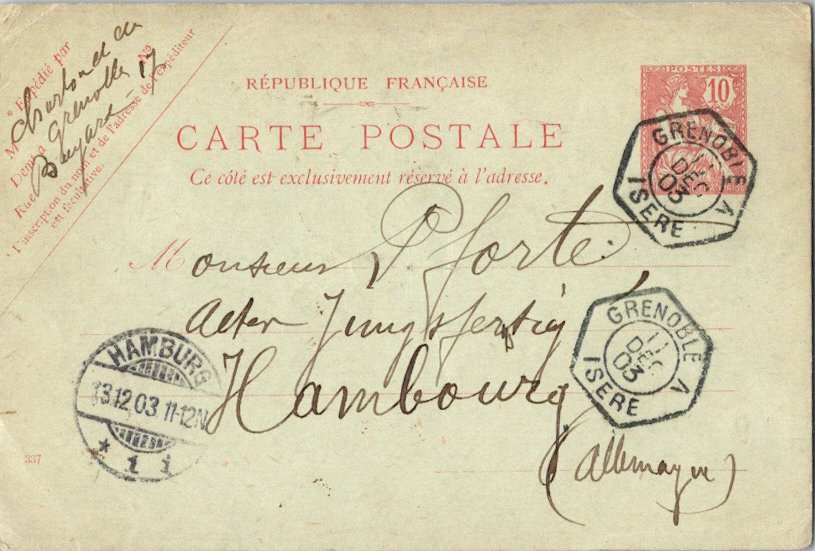 * Expédié par
M
Demt à Grenoble
Rue Bayard No 17
* L'inscription du nom et de l'adresse de l'expéditeur
est facultative.
RÉPUBLIQUE FRANÇAISE
CARTE POSTALE
Ce côté est exclusivement réservé à l'adresse.
POSTES
10
GRENOBLE A
11
DEC
03
ISERE
Monsieur Pforte
Alter Jungfernstieg
Hambourg
(Allemagne)
GRENOBLE A
11
DEC
03
ISERE
HAMBURG
13.12.03 11-12N
* 1 i
337